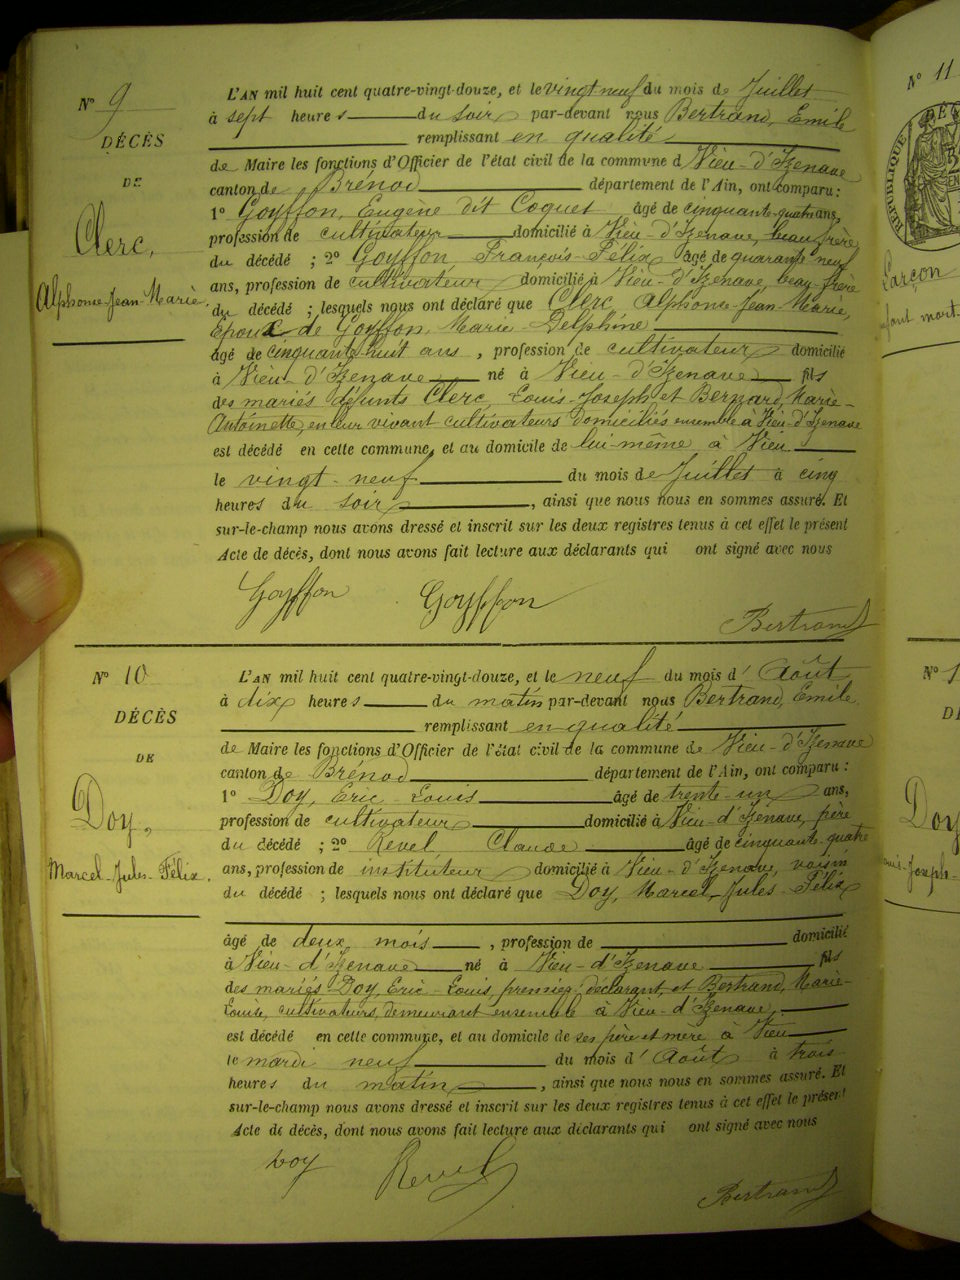 N° 9
DÉCÈS
DE
Clerc,
Alphonse-Jean-Marie.
L'AN mil huit cent quatre-vingt-douze, et le vingt neuf du mois de Juillet
à sept heures du soir par-devant nous Bertrand, Emile
remplissant en qualité
de Maire les fonctions d'Officier de l'état civil de la commune d Vieu-d'Izenave
canton de Brénod département de l'Ain, ont comparu :
1° Goyffon, Eugène dit Coquet âgé de cinquante-quatre ans,
profession de cultivateur domicilié à Vieu-d'Izenave, beau frère
du décédé ; 2° Goyffon François-Félix âgé de quarante neuf
ans, profession de cultivateur domicilié à Vieu-d'Izenave, beau-frère
du décédé ; lesquels nous ont déclaré que Clerc, Alphonse-Jean-Marie,
Epoux de Goyffon, Marie-Delphine
âgé de cinquante huit ans , profession de cultivateur domicilié
à Vieu-d'Izenave né à Vieu-d'Izenave fils
des mariés défunts Clerc, Louis-Joseph et Bernard, Marie-
Antoinette, en leur vivant cultivateurs domiciliés ensemble à Vieu-d'Izenave
est décédé en cette commune, et au domicile de lui-même à Vieu
le vingt-neuf du mois de Juillet à cinq
heures du soir , ainsi que nous nous en sommes assuré. Et
sur-le-champ nous avons dressé et inscrit sur les deux registres tenus à cet effet le présent
Acte de décès, dont nous avons fait lecture aux déclarants qui ont signé avec nous
Goyffon Goyffon
Bertrand
N° 10
DÉCÈS
DE
Doy,
Marcel-Jules-Félix.
L'AN mil huit cent quatre-vingt-douze, et le neuf du mois d' Août
à dix heures du matin par-devant nous Bertrand, Emile,
remplissant en qualité
de Maire les fonctions d'Officier de l'état civil de la commune de Vieu-d'Izenave
canton de Brénod département de l'Ain, ont comparu :
1° Doy, Eric-Louis âgé de trente-un ans,
profession de cultivateur domicilié à Vieu-d'Izenave, père
du décédé ; 2° Revel Claude âgé de cinquante-quatre
ans, profession de instituteur domicilié à Vieu-d'Izenave, voisin
du décédé ; lesquels nous ont déclaré que Doy, Marcel-Jules-Félix
âgé de deux mois , profession de domicilié
à Vieu-d'Izenave né à Vieu-d'Izenave fils
des mariés Doy, Eric-Louis, premier déclarant, et Bertrand, Marie-
Louise, cultivateurs, demeurant ensemble à Vieu-d'Izenave,
est décédé en cette commune, et au domicile de ses père et mère à Vieu
le mardi neuf du mois d' Août à trois
heures du matin , ainsi que nous nous en sommes assuré. Et
sur-le-champ nous avons dressé et inscrit sur les deux registres tenus à cet effet le présent
Acte de décès, dont nous avons fait lecture aux déclarants qui ont signé avec nous
Doy Revel
Bertrand
N° 11
RÉPUBLIQUE
Garçon
mort-
Doy
Joseph-